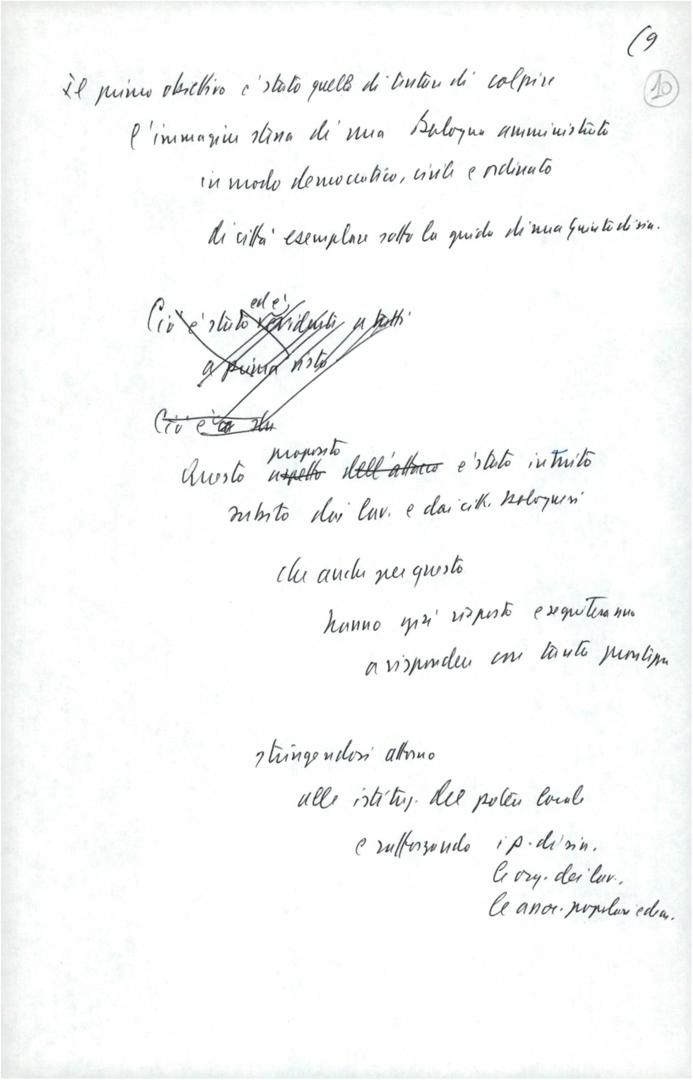 (9
10
Il primo obiettivo è stato quello di tentare di colpire
l'immagine stessa di una Bologna amministrata
in modo democratico, civile e ordinato
di città esemplare sotto la guida di una Giunta di sin.
ed è
Ciò è stato evidente a tutti
a prima vista
Ciò è
proposito
Questo aspetto dell'attacco è stato intuito
subito dai lav. e dai citt. bolognesi
che anche per questo
hanno già risposto e seguiteranno
a rispondere con tanta prontezza
stringendosi attorno
alle istituz. del potere locale
e rafforzando i p. di sin.
le org. dei lav.
le assoc. popolari e dem.